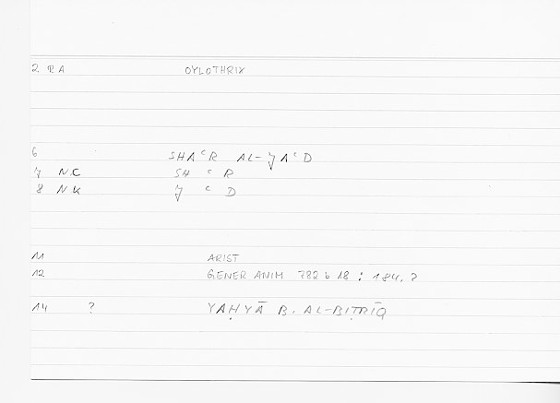 2 OYLOTHRIX
6 SHAᶜR AL-ǦAᶜD
7 N.C SH ᶜ R
8 NK Ǧ ᶜ D
11 ARIST
12 GENER ANIM 782 b 18 : 184.2
14 ? YAḤYĀ B. AL-BIṬRĪQ